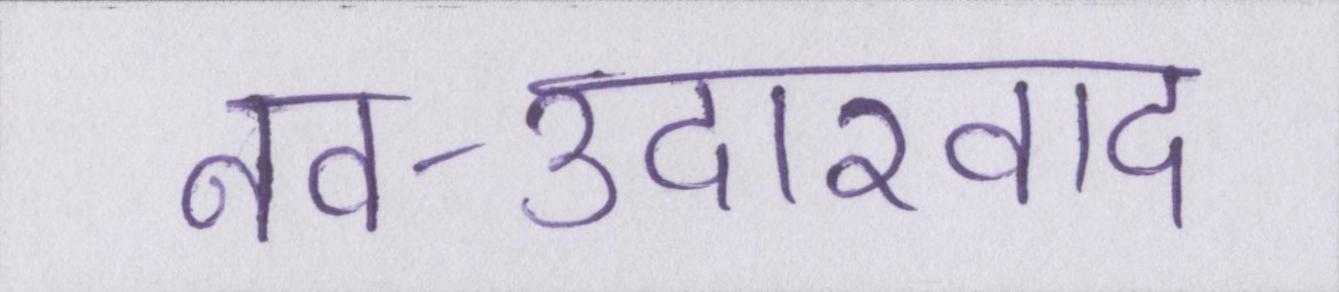 नव-उदारवाद